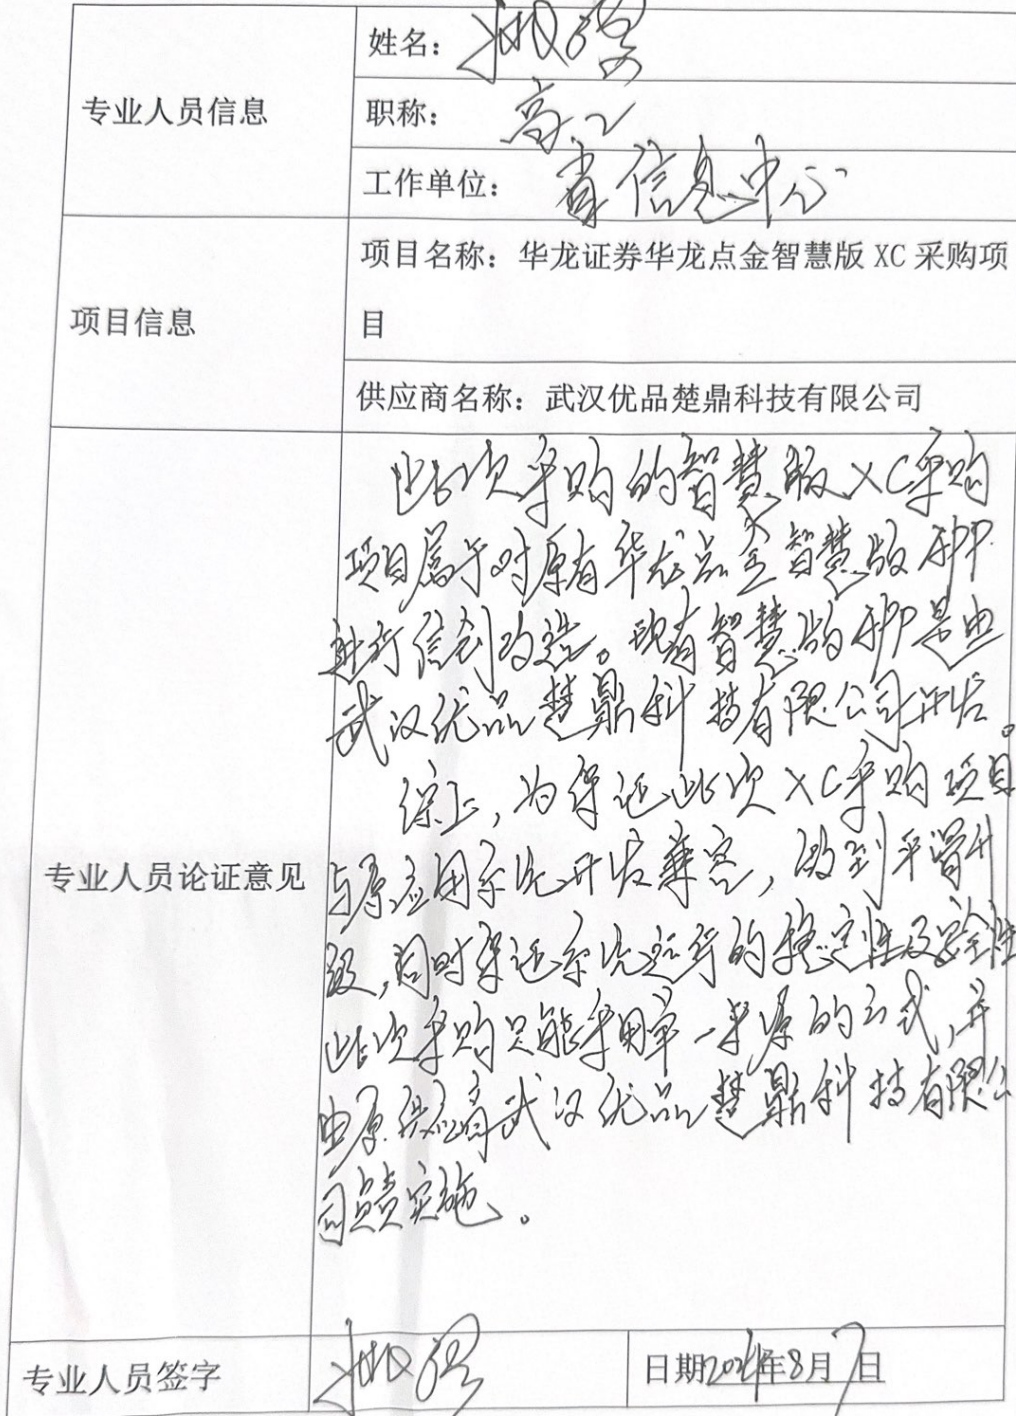 姓名：
专业人员信息
职称：高工
工作单位：省信息中心
项目名称：华龙证券华龙点金智慧版 XC 采购项
项目信息
目
供应商名称：武汉优品楚鼎科技有限公司
此次采购的智慧版XC采购
项目属于对原有华龙点金智慧版APP
进行信创改造。现有智慧版APP是由
武汉优品楚鼎科技有限公司开发。
综上，为保证此次XC采购项目
专业人员论证意见
与原应用系统开发兼容，做到平滑升
级，同时保证系统运行的稳定性及安全性
此次采购只能采用单一来源的方式，并
由原供应商武汉优品楚鼎科技有限公
司负责实施。
专业人员签字
日期2024年8月7日